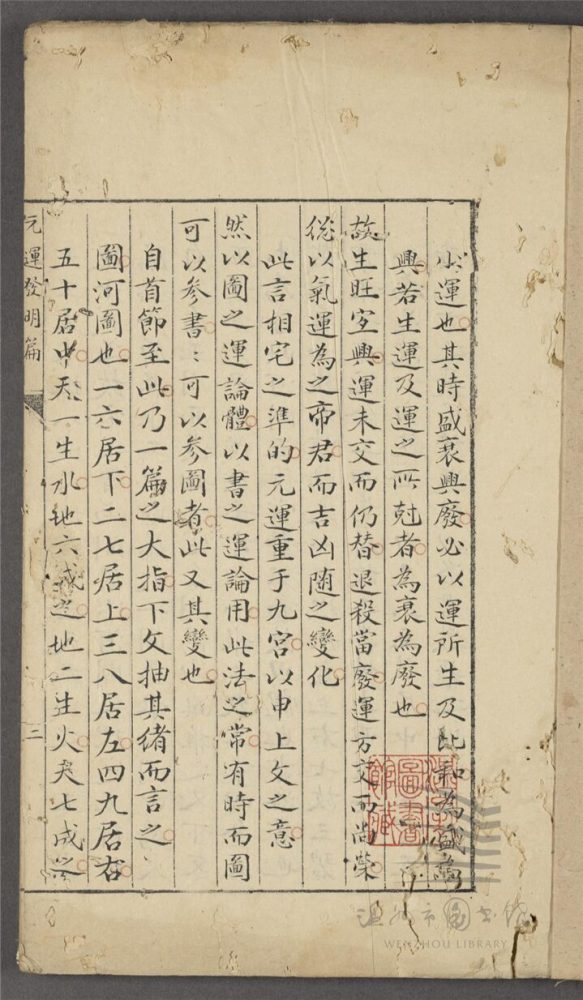 小運也其時盛衰興廢必以運所生及比和為盛為
興若生運及運之所尅者為衰為廢也
故生旺宜興運未交而仍替退殺當廢運方交而尚榮
從以氣運為之帝君而吉凶随之變化
此言相宅之準的元運重于九宮以申上文之意
然以圖之運論體以書之運論用此法之常有時而圖
可以参書〻可以参圖者此又其變也
自首節至此乃一篇之大指下文抽其绪而言之
圖河圖也一六居下二七居上三八居左四九居右
五十居中天一生水地六成之地二生火天七成之
元運發明篇
二
溫州市圖書館藏
温州市图书馆
WENZHOU LIBRARY